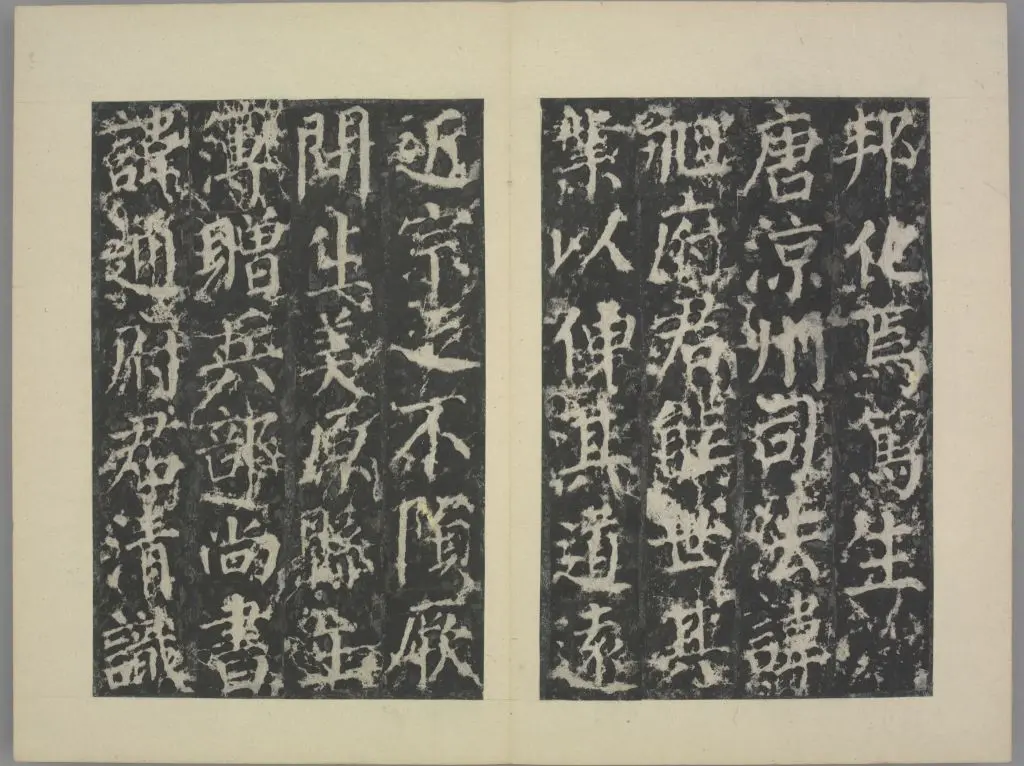 邦化焉篤生
唐涼州司法諱
昶府君能世其
業以傳其道遠
近宗之不隕厥
問生美原縣主
簿贈兵部尚書
諱通府君清識